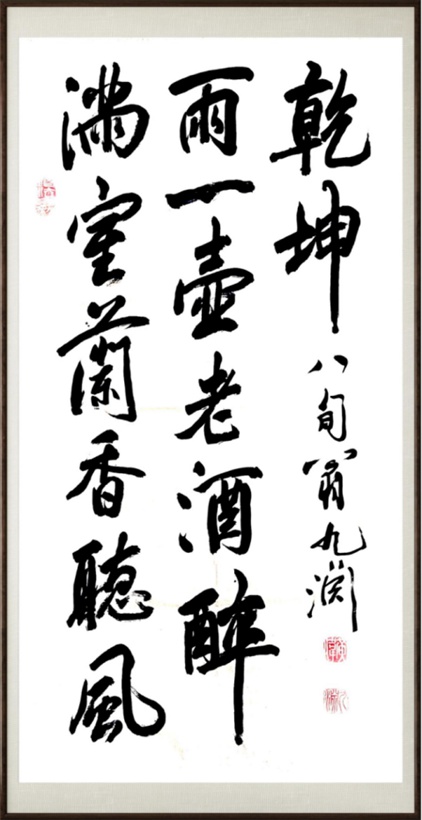 滿室蘭香聽風
雨一壺老酒醉
乾坤
八旬翁九渊